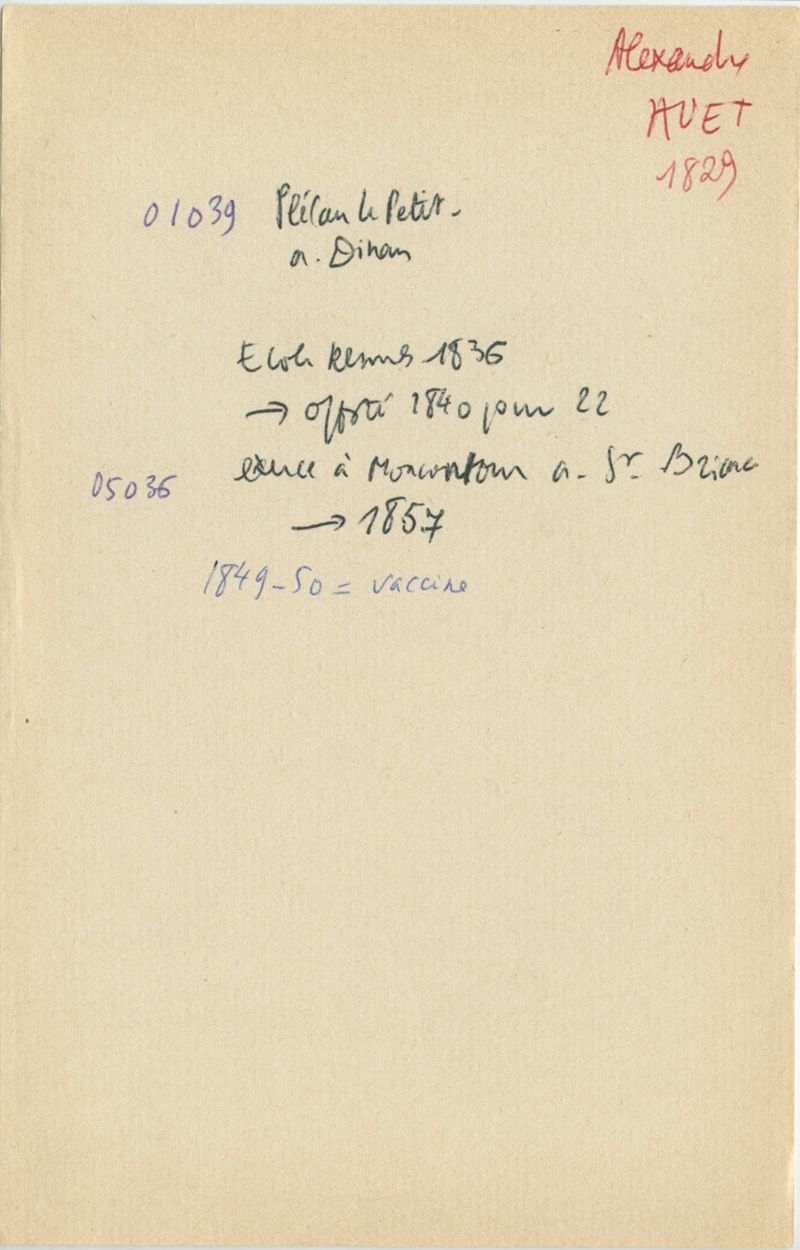 Alexandre
HUET
1829
01039 Plélan le Petit -
a. Dinan
Ecole Rennes 1836
→ 1840 pour 22
exerce à Moncontour a. St. Brieuc
05036
→ 1857
1849-50 = vaccine